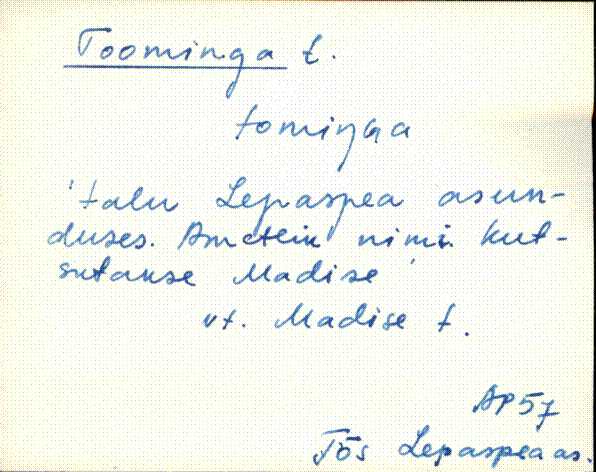 Toominga t.
tominga
'talu Lepaspea asun-
duses. Ametlik nimi. Kut-
sutakse Madise
vt. Madise t.
AP57
Tõs Lepaspea as.